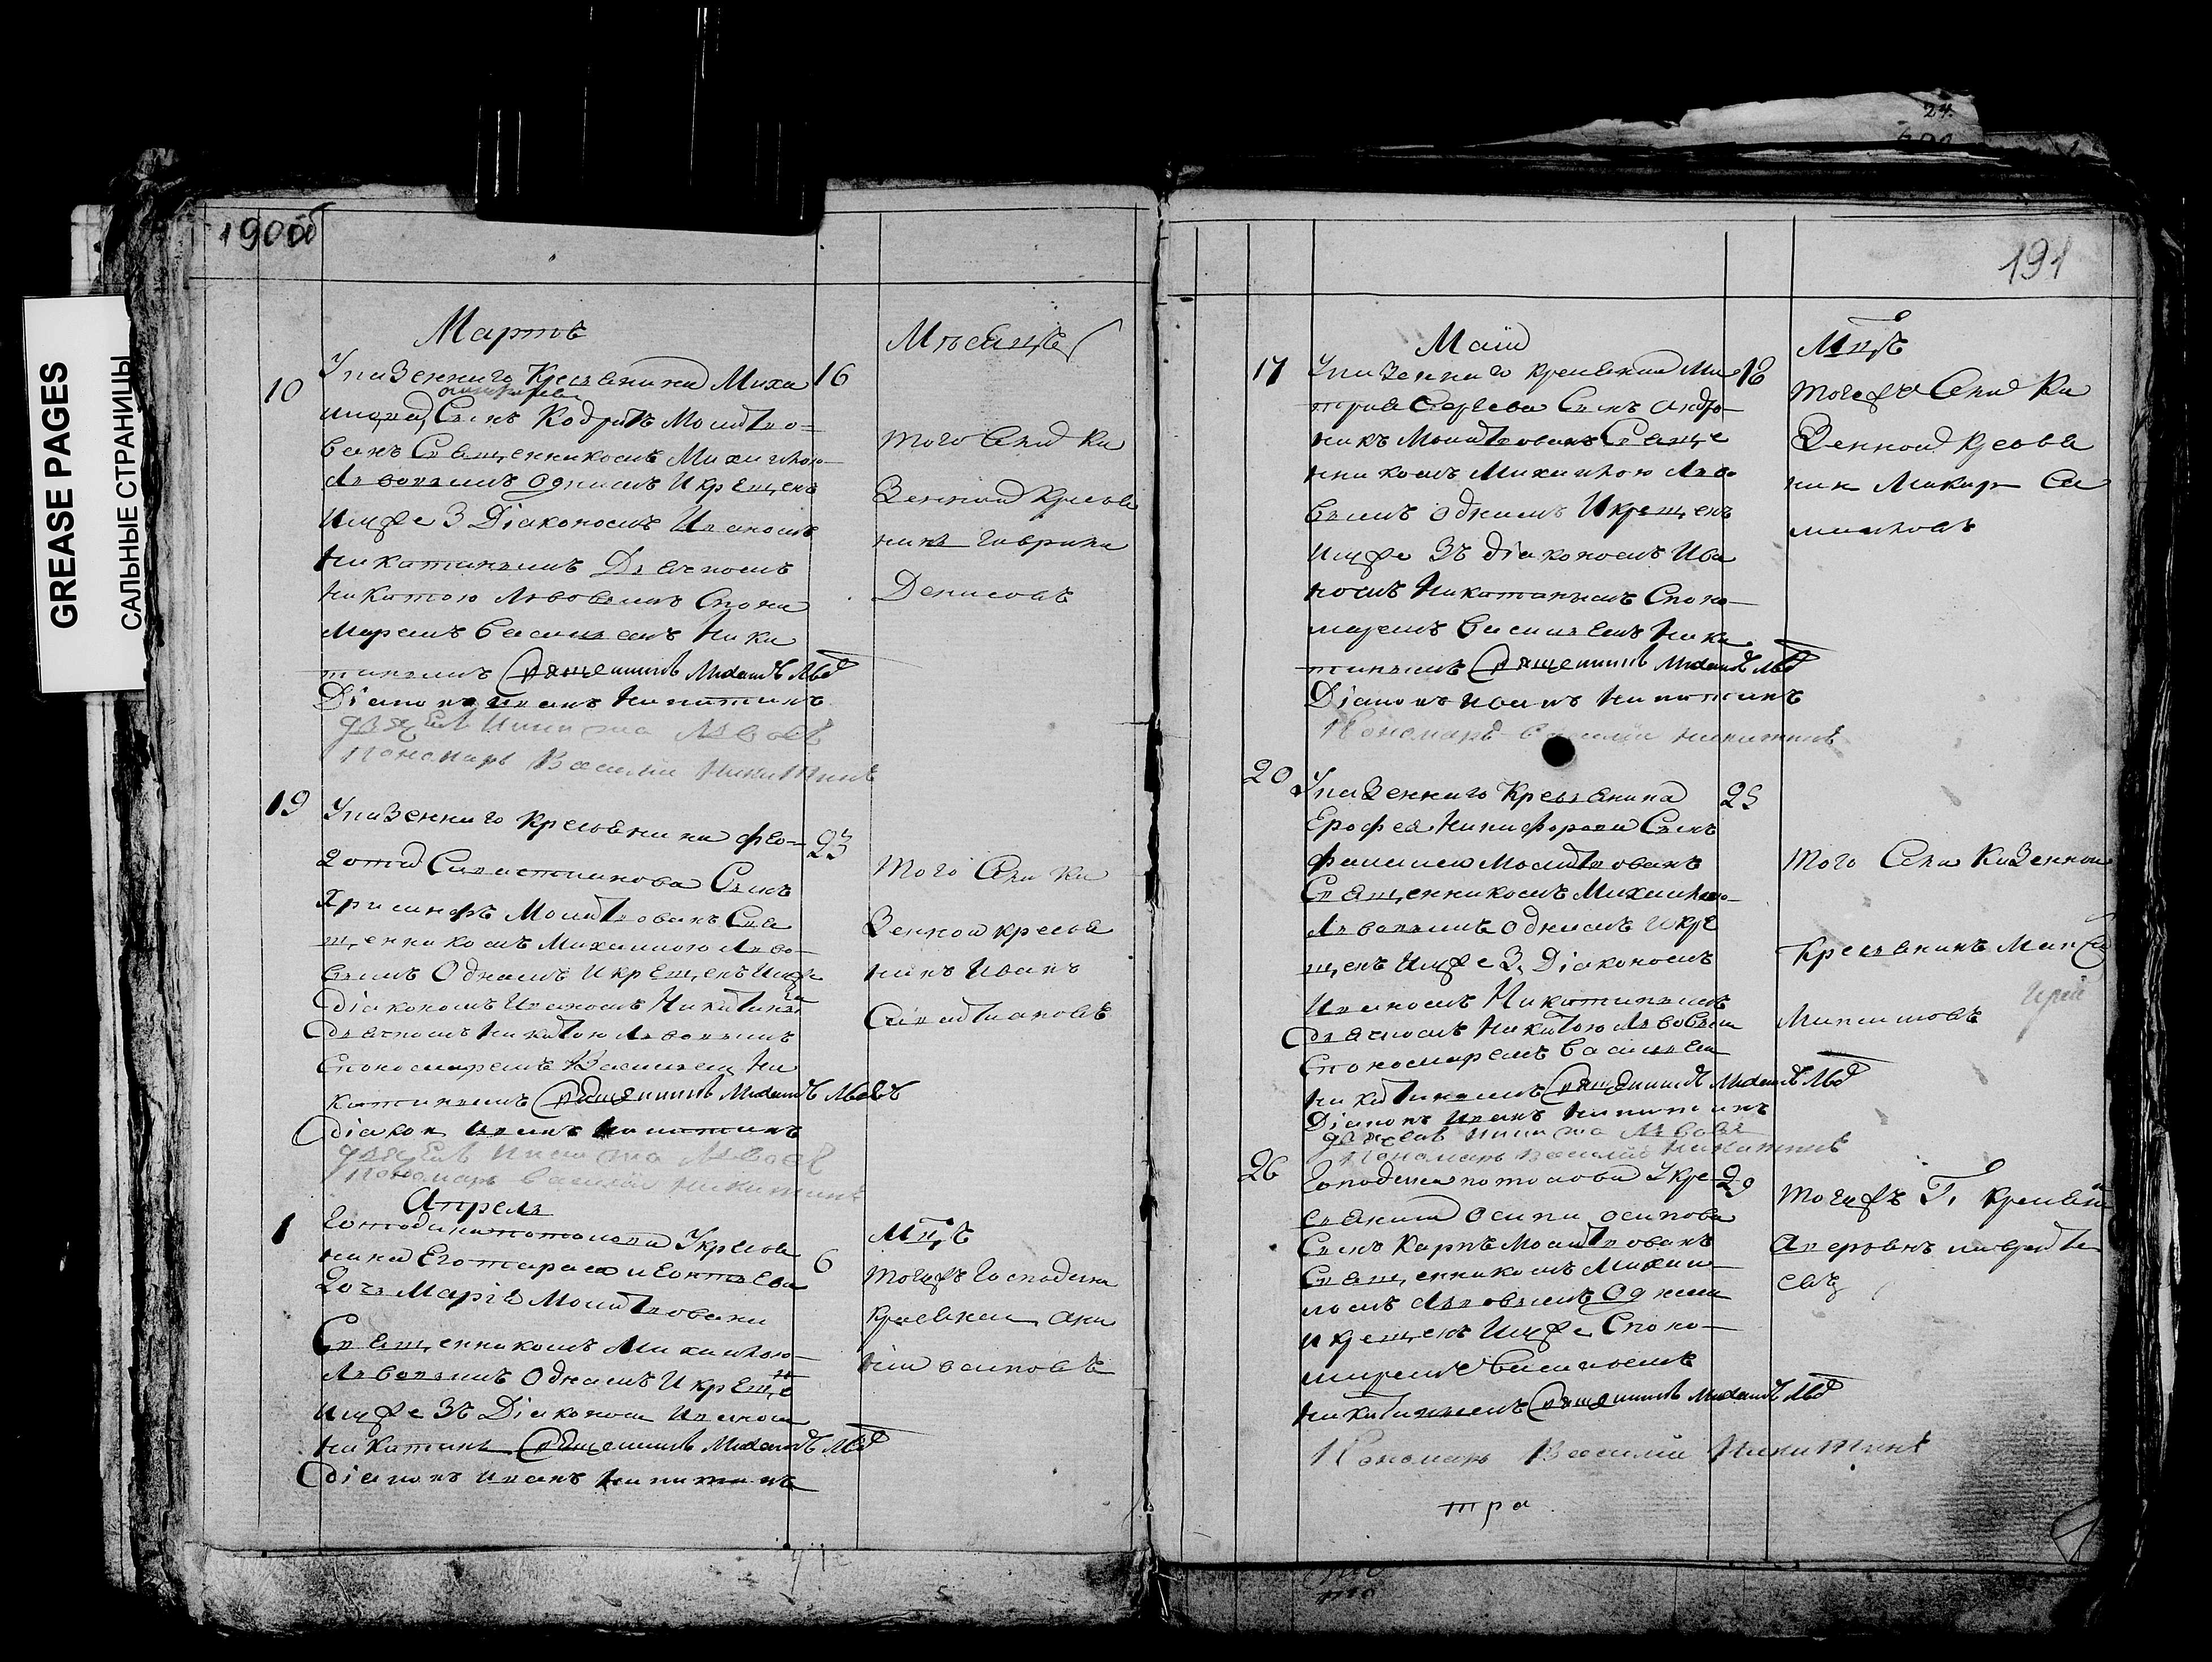 GREASE PAGES
САЛЬНЫЕ СТРАНИЦЫ
24.
190об
Мартъ
Мѣсяцъ
10
Указеннаго Кресьянина Миха
16
Сынъ Кодратъ Молитво=
ванъ Священникомъ Михайлою
Львовымъ Однимъ И крещенъ
Имже З Діакономъ Иваномъ
Никитинымъ Дьячкомъ
Никитою Львовымъ Споно
Маремъ Василіемъ Ники
тинымъ Священникъ Михаилъ Льво
Діаконъ Иванъ Никитинъ
Дьячекъ Никита Львовъ
Пономарь Василий Никитинъ
того Села Ка
Зенной Кресья
нинъ Гаврила
Денисовъ
19
Указеннаго Кресьянина Фео-
23
дота Силистинова Сынъ
Хрисанфъ Молитвованъ Свя
щенникомъ Михаилою Льво-
вымъ Однимъ И крещенъ Имже
Сдіакономъ Иваномъ Никитины
Сдьячкомъ Никитою Львовымъ
Спономаремъ Василиемъ Ни
китинымъ Священникъ Михаилъ Львовъ
Діакон Иванъ Никитинъ
Дьячекъ Никита Львовъ
Пономарь Василий Никитинъ
того Села Ка
Зенной кресья
нинъ Иванъ
Апрель
1
Господина Потолова Укресья
6
нина
дочь Марія Молитвована
Священникомъ Михаилою
Львовымъ Однимъ И креще
Имже Зъ Діакономъ Иваномъ
Никитинъ Священникъ Михаилъ Льво
Діаконъ Иванъ Никитинъ
Мцъ
Тогожъ Господина
кресьянин
осиповъ
191
Маия
Мцъ
17
Указеннаго кресьянина Ми
18
трия Сергеева Сынъ Андро-
никъ Молитвованъ Свяще
нникомъ Михаилою Льво
вымъ однимъ И крещенъ
Имже Зъ діакономъ Ива
номъ Никитинымъ Споно-
маремъ Василіемъ Ники
тинымъ Священникъ Михаилъ Льво
Діаконъ Иванъ Никитинъ
Пономарь Василий Никитинъ
тогожъ Села Ка
Зенной Кресья
нин Макар Са
мойловъ
20
Указеннаго Кресьянина
25
Ерофея Никифорова Сынъ
Фалилей Молитвованъ
Священникомъ Михаилою-
Львовымъ Однимъ И кре
щенъ Имже З Діакономъ
Иваномъ Никитинымъ
Сдьячкомъ Никитою Львовым
Спономаремъ Василием
Никитинымъ Священникъ Михаилъ Льво
Діаконъ Иванъ Никитинъ
Дьячекъ Никита Львовъ
Пономарь Василий Никитинъ
Того Села Казенной
Кресьянинъ
26
Господина Потолова Укре
29
сьянина Осипа Осипова
Сынъ Карпъ Молитвованъ
Священникомъ Михаи-
ломъ Львовымъ Одним
И крещенъ Имже Споно-
маремъ Василиемъ
Никитинымъ Священникъ Михаилъ Льво
Пономарь Василий Никитинъ
Тогожъ Г. Кресьяни
тра